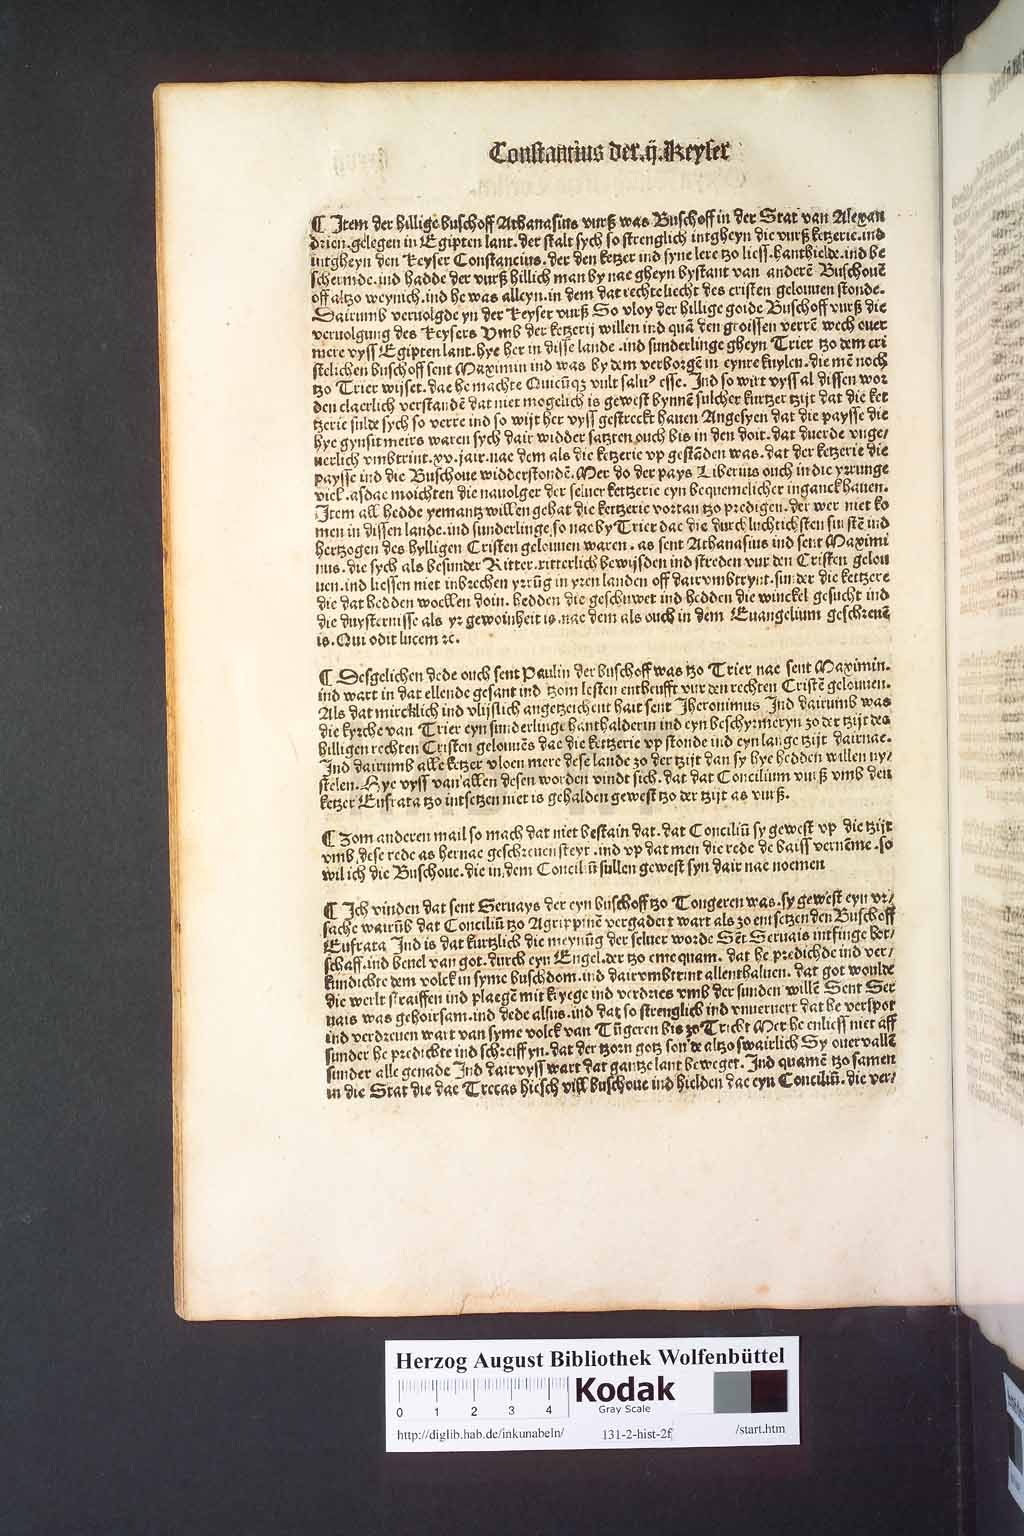 Constantius der .ij. Keyser
¶ Item der hillige buschoff Athanasius vurß was Buschoff in der Stat van Alexan
drien. gelegen in Egipten lant. der stalt sych so strenglich intgheyn die vurß ketzerie. ind
intgheyn den Keyser Constancius. der den ketzer ind syne lere tzo liess. hanthielde. ind be
schermde. ind hadde der vurß hillich man by nae gheyn bystant van anderē Buschouē
off altzo weynich. ind he was alleyn. in dem dat rechte liecht des cristen gelouuen stonde.
Dairumb veruolgde yn der keyser vurß So vloy der hillige goide Buschoff vurß die
veruolgung des Keysers Vmb der ketzerij willen ind quā den groissen verrē wech ouer
mere vyss Egipten lant. hye her in disse lande. ind sunderlinge gheyn Trier tzo dem cri
stelichen buschoff sent Maximin ind was by dem verborgē in eynre kuylen. die mē noch
tzo Trier wijset. dae he machte Quicūqꝫ vult saluꝰ esse. Ind so wirt vyss al dissen wor
den claerlich verstandē dat niet mogelich is gewest bynnē sulcher kurtzer tzijt dat die ket
tzerie sulde sych so verre ind so wijt her vyss gestreckt hauen Angesyen dat die paysse die
hye gynsit meirs waren sych dair widder satzten ouch bis in den doit. dat duerde vnge/
uerlich vmbtrint. xv. jair. nae dem als die ketzerie vp gestāden was. dat der ketzerie die
paysse ind die Buschoue widderstondē. Mer do der pays Liberius ouch in die yrrunge
viel. asdae moichten die nauolger der seluer kettzerie eyn bequemelicher inganck hauen.
Item all hedde yemantz willen gehat die kettzerie vortan tzo predigen. der wer niet ko
men in dissen lande. ind sunderlinge so nae by Trier dae die durch luchtichsten fürstē ind
hertzogen des hylligen Cristen gelouuen waren. as sent Athanasius ind sent Maximi
nus. die sych als besunder Ritter. ritterlich bewijsden ind streden vur den Cristen gelou
uen. ind liessen niet inbrechen yrrūg in yren landen off dairvmbtrynt. sunder die kettzere
die dat hedden woellen doin. hedden die geschuwet ind hedden die winckel gesucht ind
die duysternisse als yr gewoinheit is. nae dem als ouch in dem Euangelium geschreuē
is. Qui odit lucem ⁊c.
¶ Desgelichen dede ouch sent Paulin der buschoff was tzo Trier nae sent Maximin.
ind wart in dat ellende gesant ind tzom lesten entheufft vur den rechten Cristē gelouuen.
Als dat mircklich ind vlijslich angetzeichent hait sent Jheronimus Ind dairumb was
die kyrche van Trier eyn sunderlinge hanthalderin ind eyn beschyrmeryn zo der tzijt des
hilligen rechten Cristen gelouuēs dae die kettzerie vp stonde ind eyn lange tzijt dairnae.
Ind dairumb alle ketzer vloen mere dese lande zo der tzijt dan sy hye hedden willen ny/
stelen. Hye vyss van allen desen worden vindt sich. dat dat Concilium vurß vmb den
ketzer Eufrata tzo intsetzen niet is gehalden gewest tzo der tzijt as vurß.
¶ Zom anderen mail so mach dat niet bestain dat. dat Conciliū sy gewest vp die tzijt
vmb dese rede as hernae geschreuen steyt. ind vp dat men die rede de baiss vernēme. so
wil ich die Buschoue. die in dem Conciliū sullen gewest syn dair nae noemen
¶ Ich vinden dat sent Seruays der eyn buschoff tzo Tongeren was. sy gewest eyn vr/
sache wairūb dat Conciliū tzo Agrippinē vergadert wart als zo entsetzen den Buschoff
Eufrata Ind is dat kurtzlich die meynūg der seluer worde Sēt Seruais intfinge bot/
schaff. ind beuel van got. durch eyn Engel. der tzo eme quam. dat he predichde ind ver/
kundichte dem volck in syme buschdom. ind dairvmbtrint allenthaluen. dat got woulde
die werlt straiffen ind plaegē mit kryege ind verdries vmb der sunden willē Sent Ser
uais was gehoirsam. ind dede alsus. ind dat so strenglich ind vnuernert dat he verspot
ind verdreuen wart van syme volck van Tūgeren bis zo Tricht Mer he enliess niet aff
sunder he predichte ind schreiff yn. dat der tzorn gotz sonde altzo swairlich Sy ouervallē
sunder alle genade Ind dairvyss wart dat gantze lant beweget. Ind quamē tzo samen
in die Stat die dae Trecas hiesch vill buschoue ind hielden dae eyn Conciliū. die ver/
Herzog August Bibliothek Wolfenbüttel
0 1 2 3 4
Kodak
Gray Scale
http://diglib.hab.de/inkunabeln/ 131-2-hist-2f /start.htm